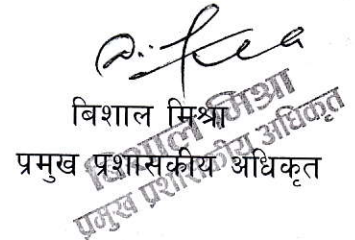 बिशाल मिश्रा
प्रमुख प्रशासकीय अधिकृत
बिशाल मिश्रा
प्रमुख प्रशासकीय अधिकृत